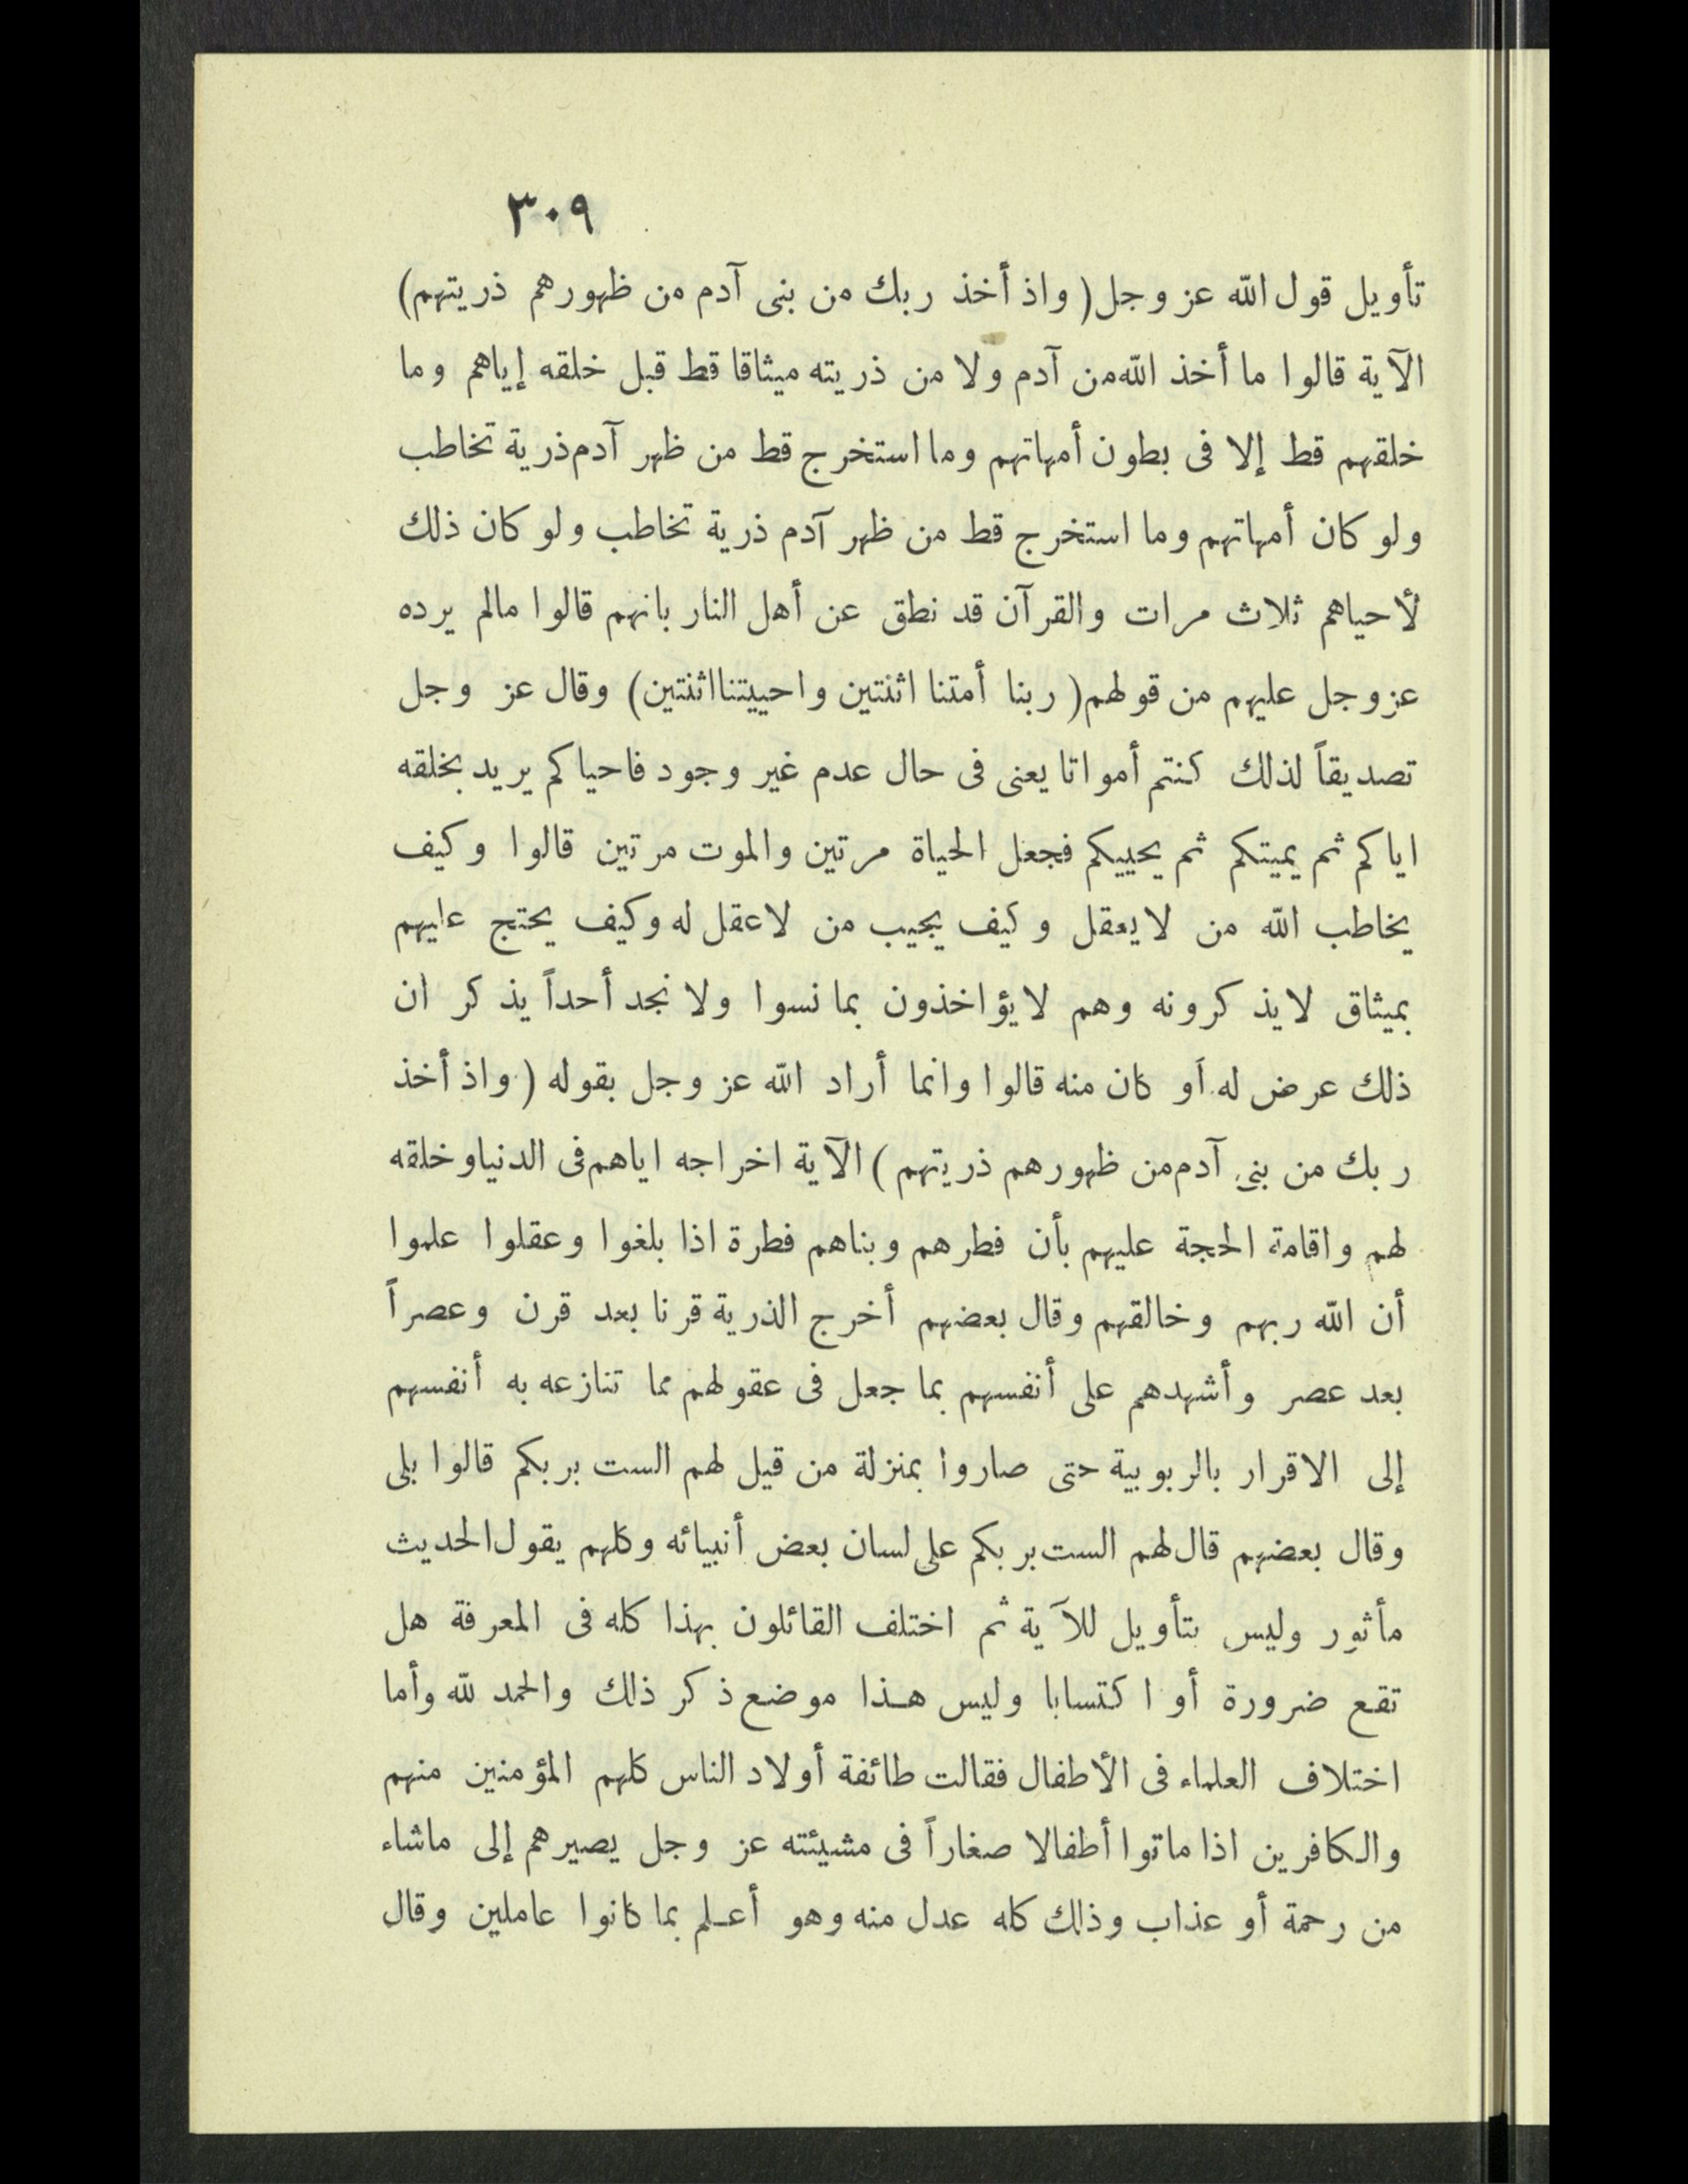 ٣٠٩
تأويل قول الله عز وجل ( واذ أخذ ربك من بنى آدم من ظهورهم ذريتهم )
الآية قالوا ما أخذ الله من آدم ولا من ذريته ميثاقا قط قبل خلقه إياهم وما
خلقهم قط إلا فى بطون أمهاتهم وما استخرج قط من ظهر آدم ذرية تخاطب
ولو كان أمهاتهم وما استخرج قط من ظهر آدم ذرية تخاطب ولو كان ذلك
لأحياهم ثلاث مرات والقرآن قد نطق عن أهل النار بانهم قالوا مالم يرده
عزوجل عليهم من قولهم ( ربنا أمتنا اثنتين واحييتنا اثنتين ) وقال عز وجل
تصديقاً لذلك كنتم أمواتا يعنى فى حال عدم غير وجود فاحياكم يريد بخلقه
اياكم ثم يميتكم ثم يحييكم فجعل الحياة مرتين والموت مرتين قالوا وكيف
يخاطب الله من لايعقل وكيف يجيب من لاعقل له وكيف يحتج عليهم
بميثاق لايذكرونه وهم لايؤاخذون بما نسوا ولا نجد أحداً يذكر ان
ذلك عرض له أو كان منه قالوا وانما أراد الله عز وجل بقوله ( واذ أخذ
ربك من بنى آدم من ظهورهم ذريتهم ) الآية اخراجه اياهم فى الدنيا وخلقه
لهم واقامة الحجة عليهم بأن فطرهم وبناهم فطرة اذا بلغوا وعقلوا علموا
أن الله ربهم وخالقهم وقال بعضهم أخرج الذرية قرنا بعد قرن وعصراً
بعد عصر وأشهدهم على أنفسهم بما جعل فى عقولهم مما تنازعه به أنفسهم
إلى الاقرار بالربوبية حتى صاروا بمنزلة من قيل لهم الست بربكم قالوا بلى
وقال بعضهم قال لهم الست بربكم على لسان بعض أنبيائه وكلهم يقول الحديث
مأثور وليس بتأويل للآية ثم اختلف القائلون بهذا كله فى المعرفة هل
تقع ضرورة أو اكتسابا وليس هذا موضع ذكر ذلك والحمد لله وأما
اختلاف العلماء فى الأطفال فقالت طائفة أولاد الناس كلهم المؤمنين منهم
والكافرين اذا ماتوا أطفالا صغاراً فى مشيئته عز وجل يصيرهم إلى ماشاء
من رحمة أو عذاب وذلك كله عدل منه وهو أعلم بما كانوا عاملين وقال